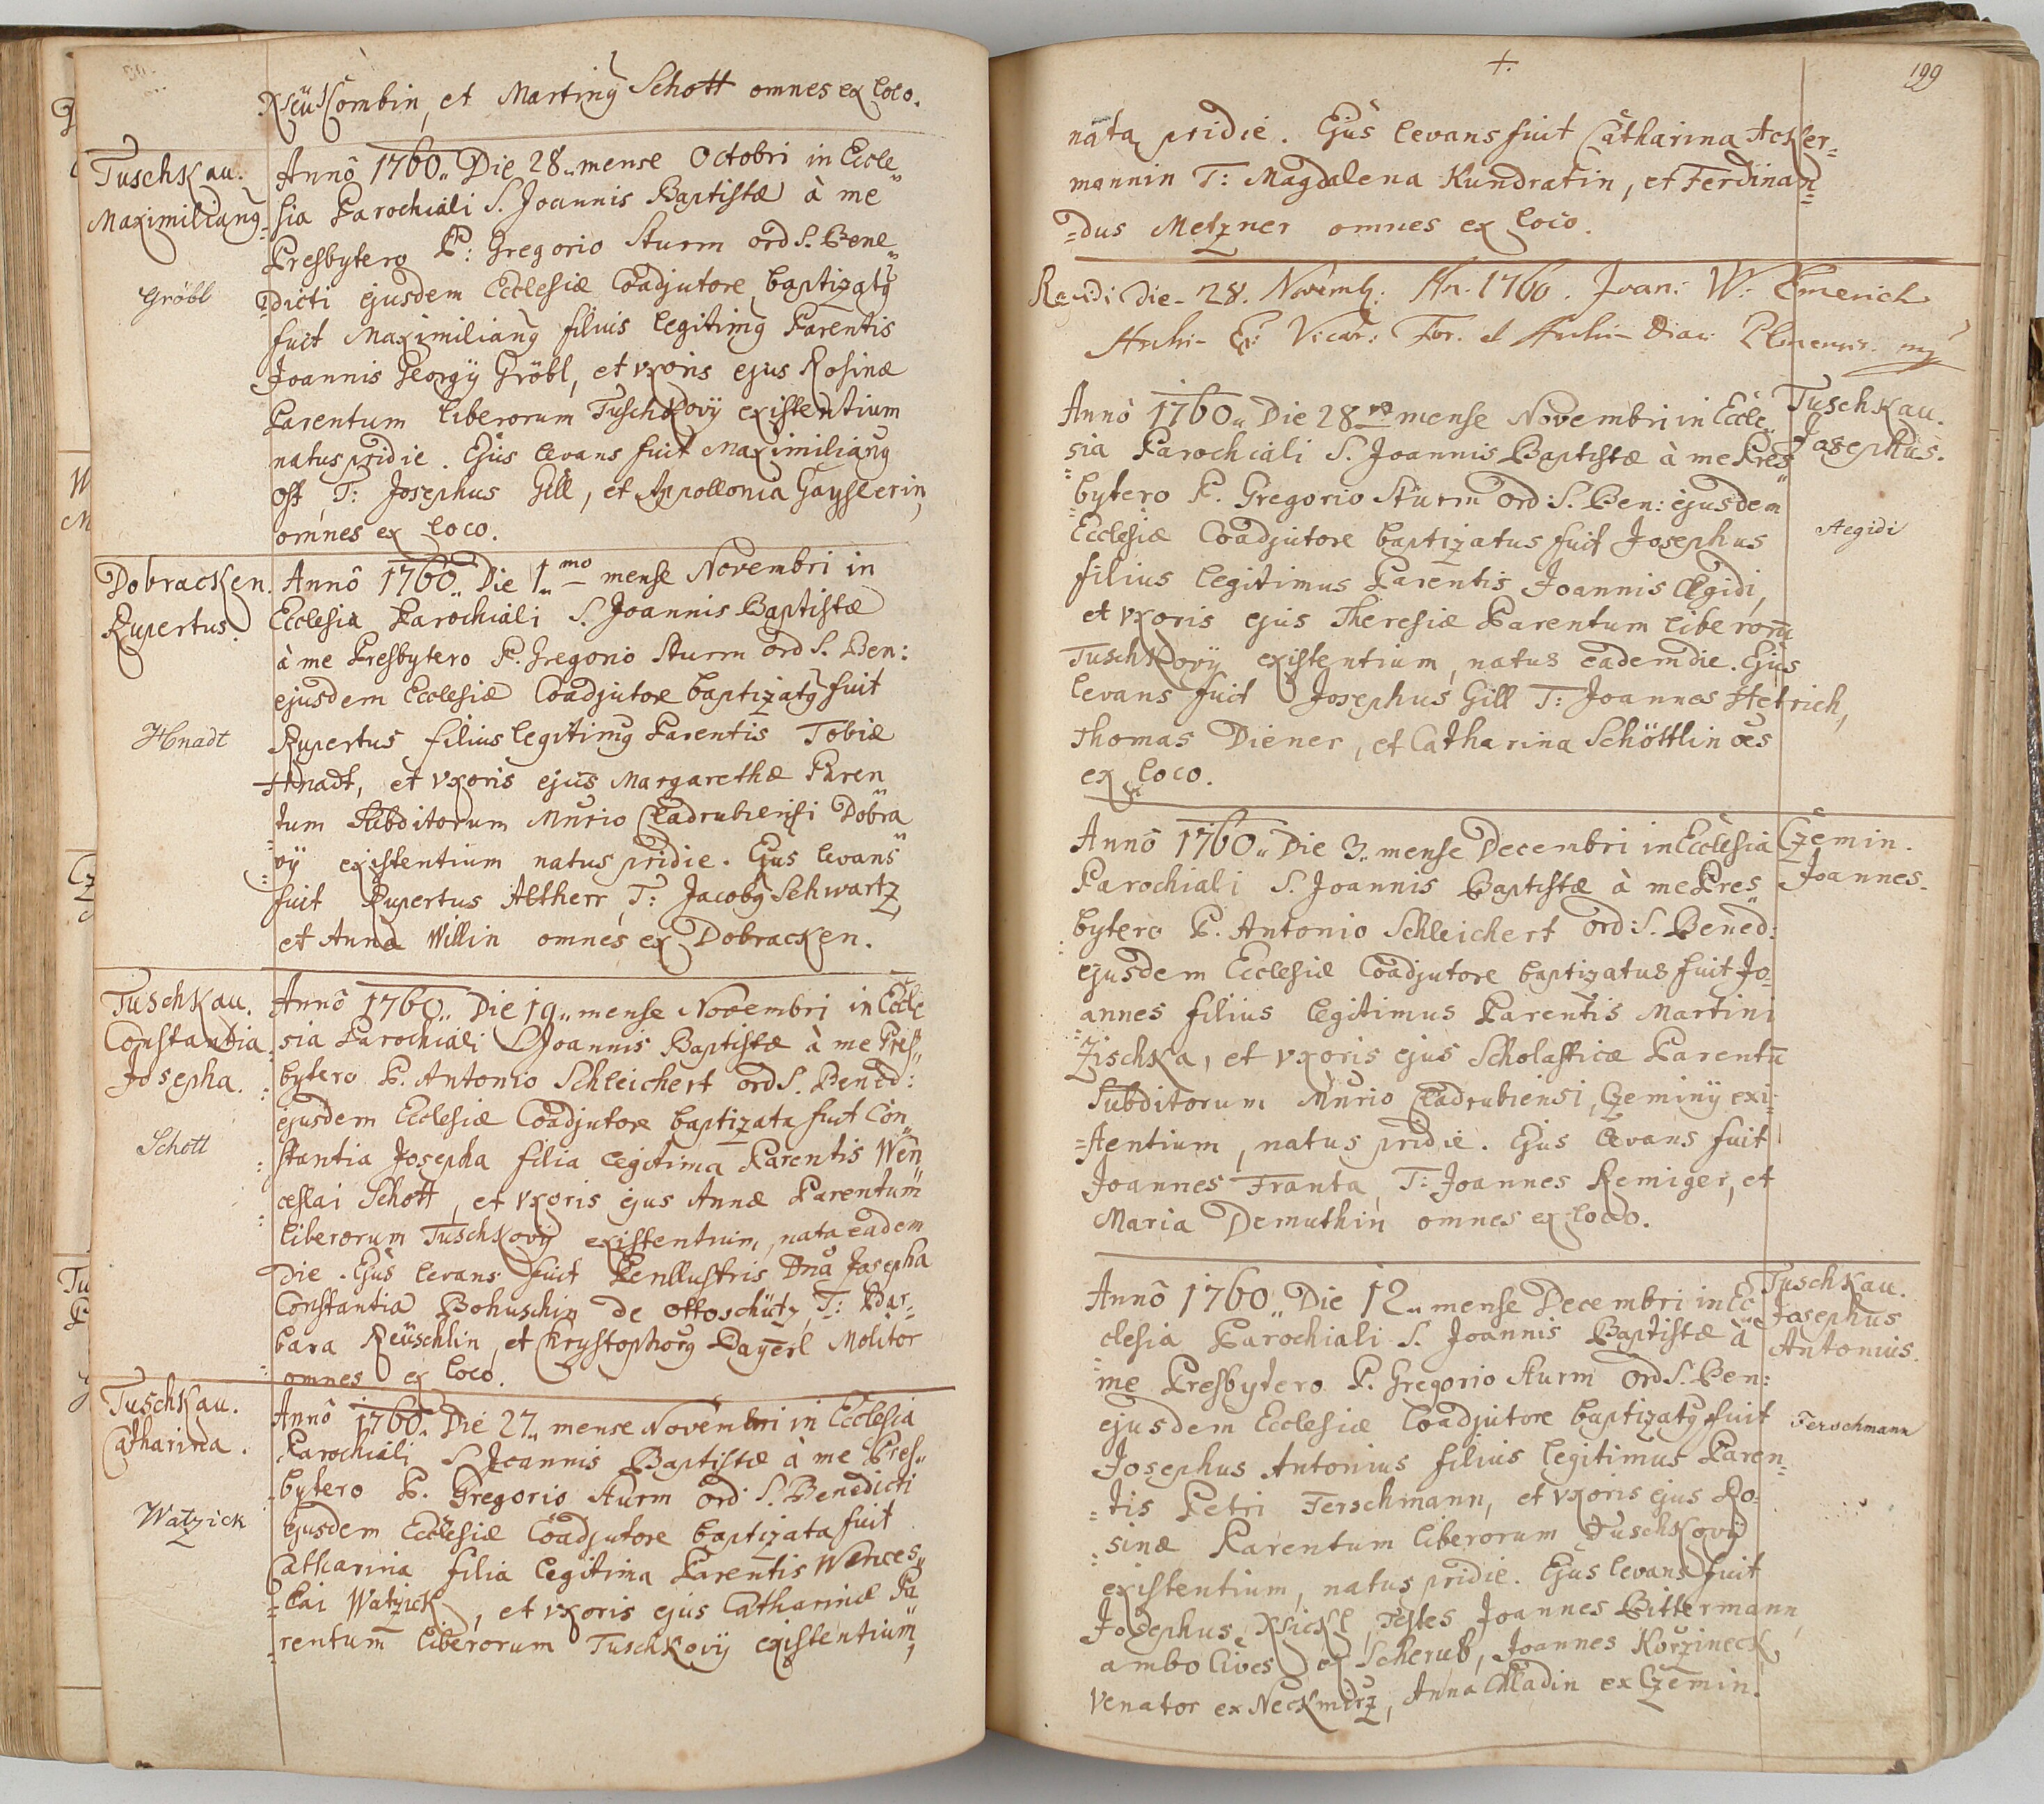 et Marting Schott omnes ex loco.
Tuschkau.
Maximiliang
Gröbl
Annô 1760.. Die 28.. mense Octobri in Eccle„
sia Parochiali S. Joannis Baptistæ à me
Presbytero P: Gregorio Sturm ord S. Bene„
dicti ejusdem Ecclesiæ Coadjutore baptizatg
fuit Maximiliang filius legitimg Parentis
Joannis Georgÿ Gröbl, et vxoris ejus Rosinæ
Parentum liberorum Tuschkovÿ existentium
natus pridie. Ejus levans fuit Maximiliang
Ost, T: Josephus Gill, et Appollonia Gayslerin,
omnes ex loco.
Dobracken.
Rupertus.
Hnadt
Annô 1760.. Die 1.. mo mense Novembri in
Ecclesia Parochiali S. Joannis Baptistæ
à me Presbytero P. Gregorio Sturm ord S. Ben:
ejusdem Ecclesiæ Coadjutore baptizatg fuit
Rupertus filius legitimg Parentis Tobiæ
Hnadt, et vxoris ejus Margarethæ Paren„
tum Subditorum Murio Cladrubiensi Dobra„
=vÿ existentium natus pridie. Ejus levans
fuit Rupertus Altherr, T: Jacobg Schwartz,
et Anna Willin omnes ex Dobracken.
Tuschkau.
Constantia
Josepha.
Schott
Annô 1760.. Die 19.. mense Novembri in Eccle
sia Parochiali S Joannis Baptistæ à me Pres„
bytero P. Antonio Schleichert ord S. Bened:
ejusdem Ecclesiæ Coadjutore baptizata fuit Con„
stantia Josepha filia legitima Parentis Wen„
ceslai Schott, et vxoris ejus Annæ Parentum
liberorum Tuschkovÿ existentium, nata eadem
die. Ejus levans fuit Perillustris Dna Josepha
Constantia Bohuschin de Ottoschütz, T: Bar=
bara Reüschlin, et Chrystophorg Payerl Molitor
omnes ex loco.
Tuschkau.
Catharina.
Watzick
Annô 1760.. Die 27.. mense Novembri in Ecclesia
Parochiali S Joannis Baptistæ à me Pres„
bytero P. Gregorio Sturm ord S. Benedicti
ejusdem Ecclesiæ Coadjutore baptizata fuit
Catharina filia legitima Parentis Wences„
=lai Watzick, et vxoris ejus Catharinæ Pa„
rentum liberorum Tuschkovÿ existentium,
199
nata pridie. Ejus levans fuit Catharina Acker=
mannin T: Magdalena Kundratin, et Ferdinan=
=dus Metzner omnes ex loco.
die 28. Novemb: An. 1760. Joan: W: Emerich
Vicar: For. et
Annô 1760.. Die 28 mense Novembri in Eccle„
sia Parochiali S. Joannis Baptistæ à me Pres„
bytero P. Gregorio Sturm ord: S. Ben: ejusdem
Ecclesiæ Coadjutore baptizatus fuit Josephus
filius legitimus Parentis Joannis Ægidi,
et vxoris ejus Theresiæ Parentum liberorū
Tuschkovÿ existentium, natus eadem die. Ejus
levans fuit Josephus Gill T: Joannes Hetrich,
Thomas Diener, et Catharina Schöttlin oes
ex loco.
Tuschkau.
Josephus.
Aegidi
Annô 1760.. Die 3.. mense Decembri in Ecclesia
Parochiali S. Joannis Baptistæ à me Pres„
bytero P. Antonio Schleichert ord: S. Bened:
ejusdem Ecclesiæ Coadjutore baptizatus fuit Jo=
annes filius legitimus Parentis Martini
Zischka, et vxoris ejus Scholasticæ Parentū
Subditorum Murio Cladrubiensi, Czeminÿ exi=
=stentium, natus pridie. Ejus levans fuit
Joannes Franta, T: Joannes Remiger, et
Maria Demuthin omnes ex loco.
Czemin.
Joannes.
Annô 1760.. Die 12.. mense Decembri in Ec„
clesia Parochiali S. Joannis Baptistæ à
me Presbytero P. Gregorio Sturm Ord S. Ben:
ejusdem Ecclesiæ Coadjutore baptizatg fuit
Josephus Antonius filius legitimus Paren=
=tis Petri Ferschmann, et vxoris ejus Ro=
sinæ Parentum liberorum Tuschkovÿ
existentium, natus pridie. Ejus levans fuit
Josephus Testes Joannes Bittermann,
ambo Cives ex Scherub, Joannes Korzineck
Venator ex Neckmirz, Anna Chladin ex Czemin.
Tuschkau.
Josephus
Antonius.
Ferschmann